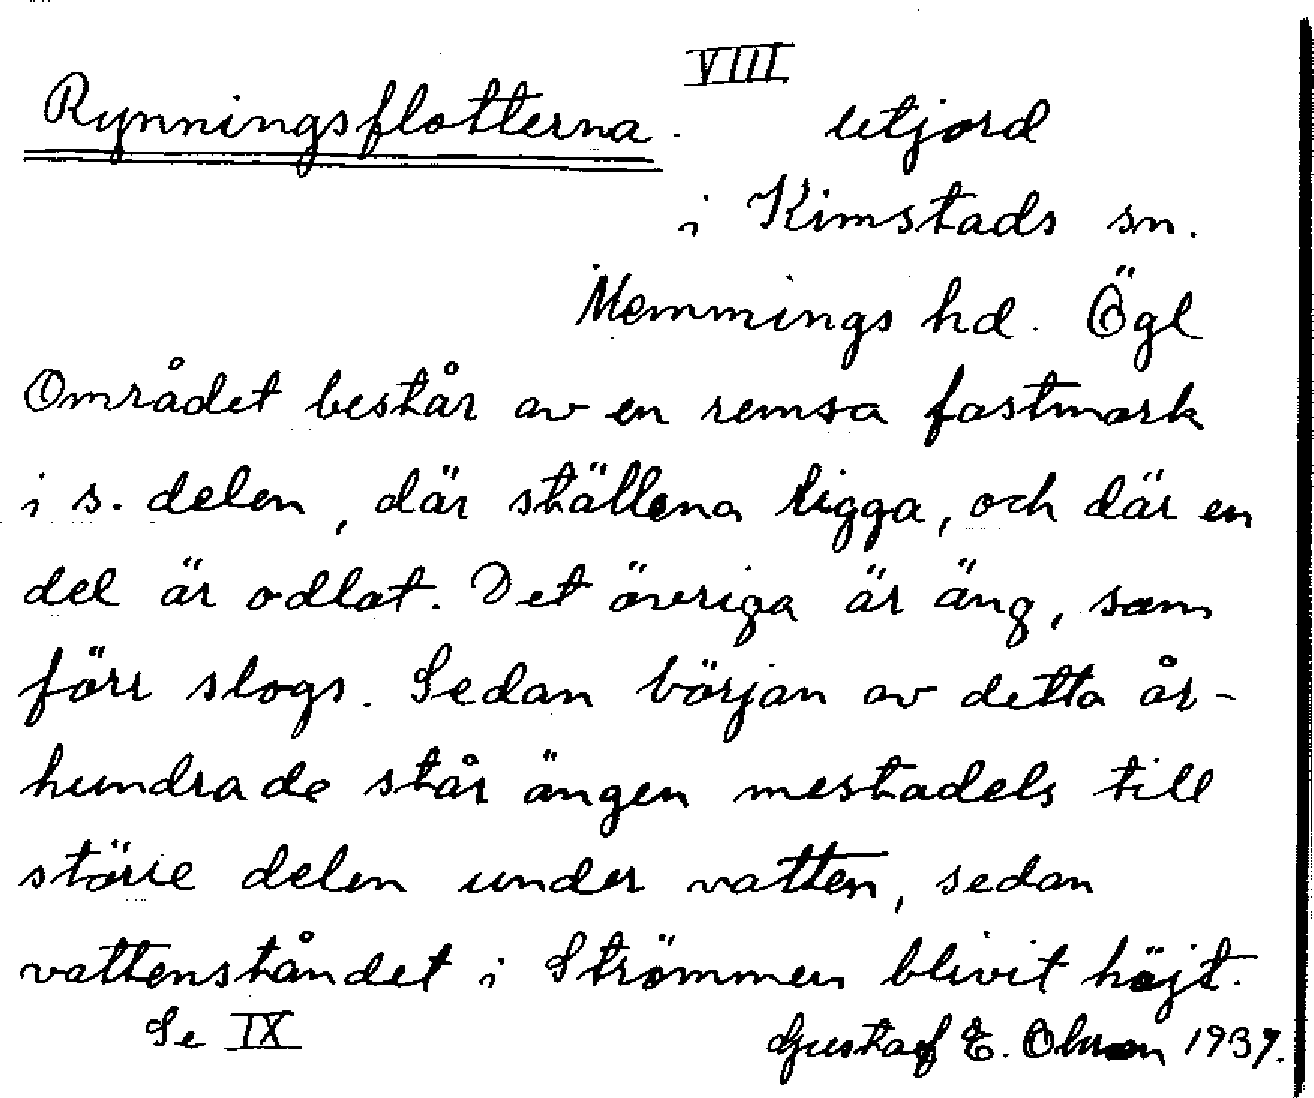 VIII
Rynningsflotterna. utjord
i Kimstads sn.
Memmings hd. Ögl
Området består av en remsa fastmark
i s. delen, där ställena ligga, och där en
del är odlat. Det övriga är äng, som
förr slogs. Sedan början av detta år-
hundrade står ängen mestadels till
större delen under vatten, sedan
vattenståndet i Strömmen blivit höjt.
Se IX Gustaf E. Olsson 1937.